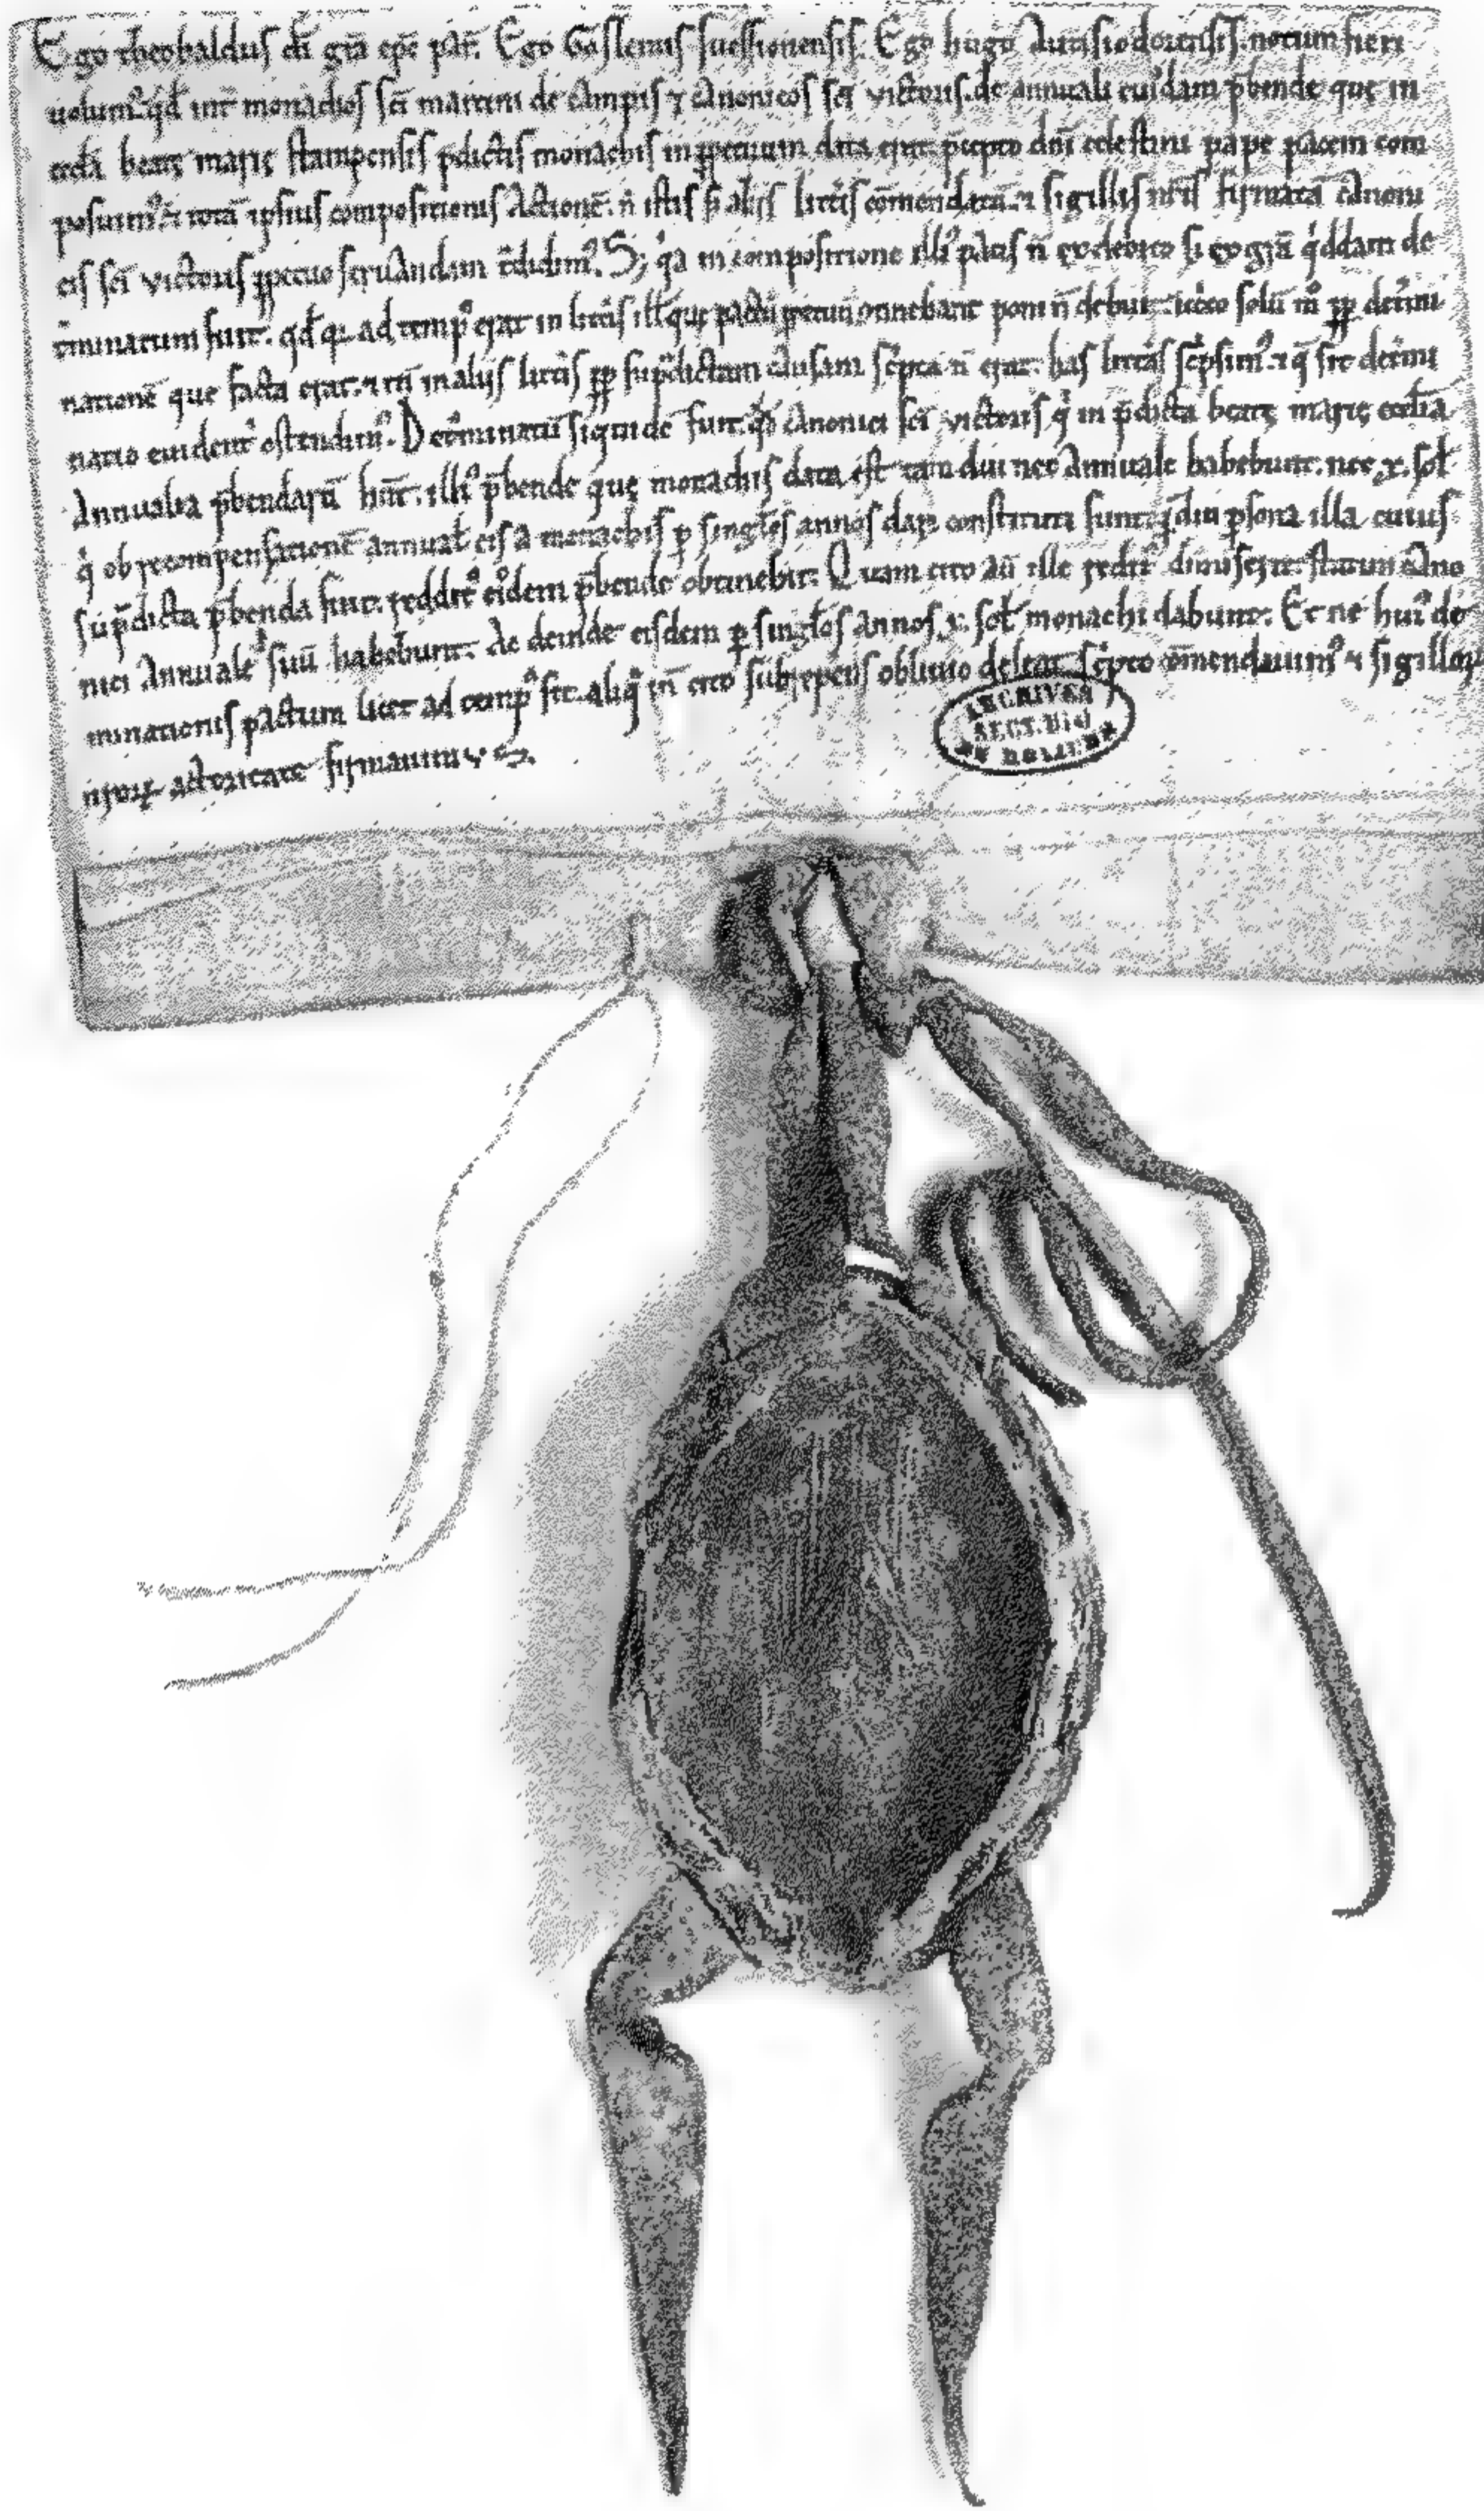 Ego theobaldus dī grā epc̄ par̄. Ego Goslenus suessionensis. Ego hugo Autisiodorensis. notum fieri
uolum⁹. qd̄ int̄ monachos sc̄i martini de cAmpis ⁊ cAnonicos sc̄i victoris. de annuali cuiꝰdam p̄bende quę in
eccłia beatę marię stampensis p̄dictis monachis in ꝑpetuum data est. p̄cepto dn̄i celestini pape pacem com
posuim⁹. ⁊ totā ipsius compositionis Actionē. n̄ istis sꝫ alijs litt̄is com̄endatā. ⁊ sigillis nr̄is firmatā cAnoni
cis sc̄i victoris ꝑpetuo seruAndam t̄didim⁹. Sꝫ qͥa in compositione illi⁹ pacis n̄ ex debito sꝫ ex grā qͥddam de
t̄minatum fuit. qd̄ qꝛ ad temp⁹ erat in litt̄is ill' quę pactū ꝑpetuū continebant poni n̄ debuit. iccͦo solū m⁰ ꝓpt̄ det̄mi
nationē que facta erat. ⁊ tn̄ in alijs litt̄is ꝓpt̄ sup̄dictam cAusam sc̄pta n̄ erat. has litt̄as sc̄psim⁹. ⁊ q̄ sit det̄mi
natio euident̄ ostendim⁹. Det̄minatū siquidē fuit. qd̄ cAnonici sc̄i victoris qͥ in p̄dicta beatę marię eccłia
Annualia p̄bendarū hn̄t. illi⁹ p̄bende quę monachis data est tam diu nec Annuale habebunt. nec .x. soł.
qͥ ob recompensationē annuał eis a monachis ꝑ singłos annos dari constituti sunt. qͣdiu ꝑsona illa cuius
sup̄dicta p̄benda fuit. reddit⁹ eiꝰdem p̄bende obtinebit. Quam cito aū ille reddit⁹ dimiserit. statim cAno
nici Annuale suū habebunt. Ac deinde eisdem ꝑ singłos Annos .x. soł monachi dabunt. Et ne hui⁹ de
minationis pactum licet ad temp⁹ sit. aliqͣ in̄ cito subrepens obliuio deleat. sc̄pto com̄endauim⁹ ⁊ sigilloꝝ
nr̄oꝝ actoritate firmauimus.
ARCHIVES
SECT. HIS